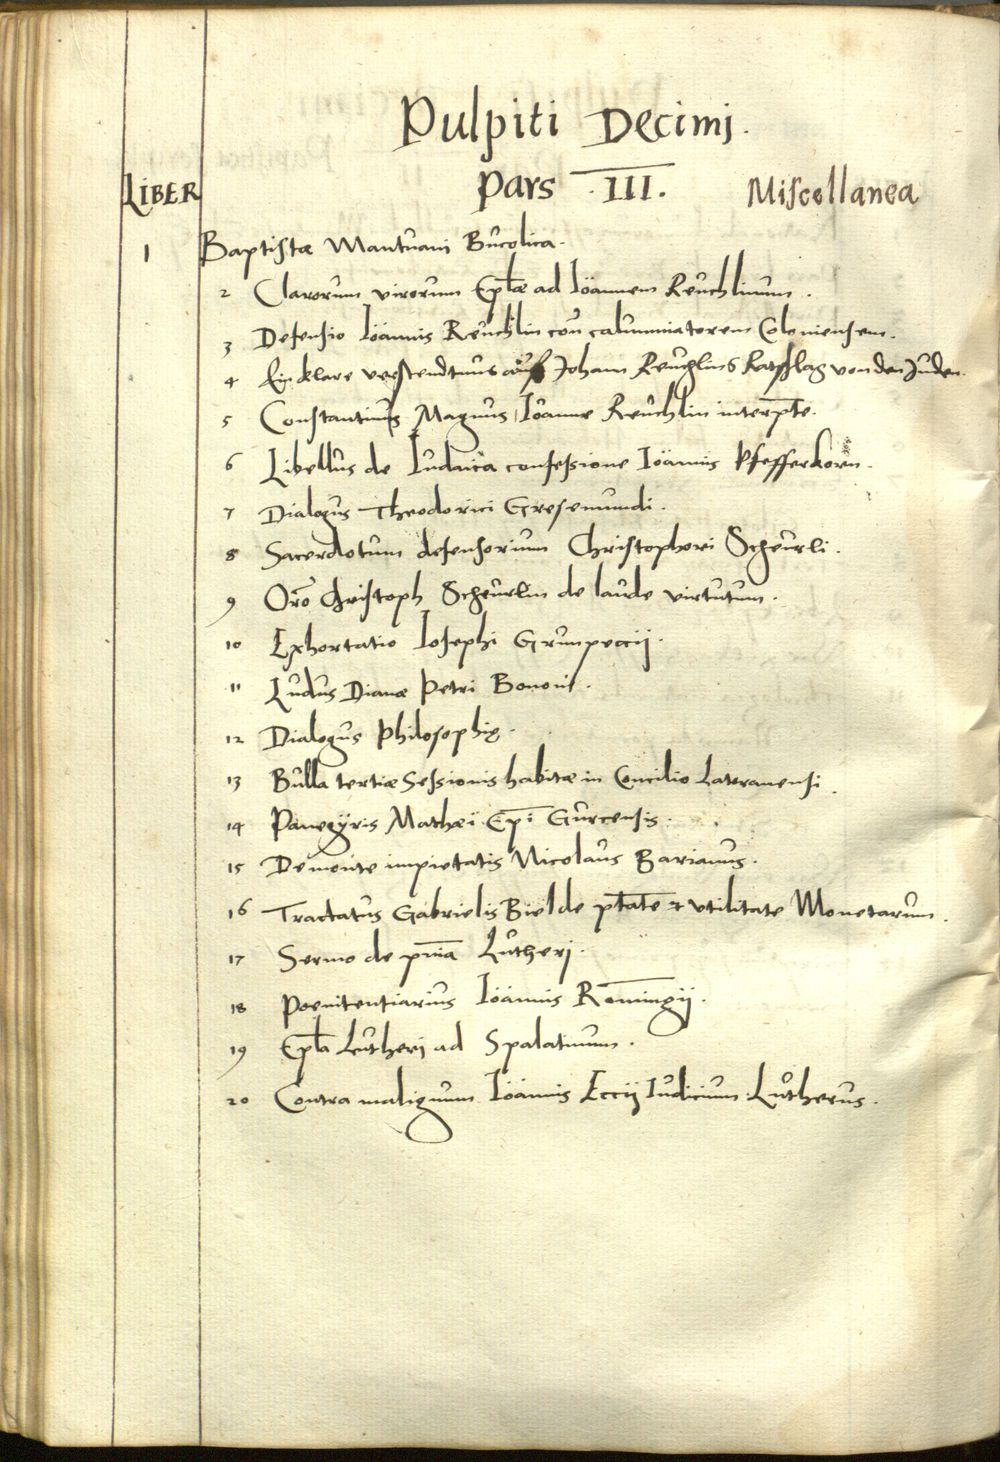 Pulpiti Decimj.
Pars III. Miscellanea
LIBER
1 Baptistæ Mantuani Bucolica.
2 Clarorum virorum Eplæ ad Ioannem Reuchlinum.
3 Defensio Ioannis Reuchlin con calumniatorem Coloniensem.
4 Ein klare verstendtnus auf Johann Reuchlins Ratschlag von den Juden.
5 Constantinus Magnus, Ioanne Reuchlin interpte.
6 Libellus de Iudaica confessione Ioannis Pfefferkorn.
7 Dialogus Theodorici Gresemundi.
8 Sacerdotum defensorium Christophori Scheurli.
9 Oro Christoph Scheurlin de laude virtutum.
10 Exhortatio Iosephi Grunpeccij.
11 Ludus Dianæ Petri Bonon.
12 Dialogus Philosophiæ.
13 Bulla tertiæ Sessionis habitæ in Concilio Lateranensi.
14 Panegyris Mathæi Epi Gurcensis.
15 De monte impietatis Nicolaus Barianus.
16 Tractatus Gabrielis Biel de ptate & vtilitate Monetarum.
17 Sermo de pnia Lutherj.
18 Poenitentiarius Ioannis Romingij.
19 Epla Lutherj ad Spalatinum.
20 Contra malignum Ioannis Eccij Iudicium Lutherus.